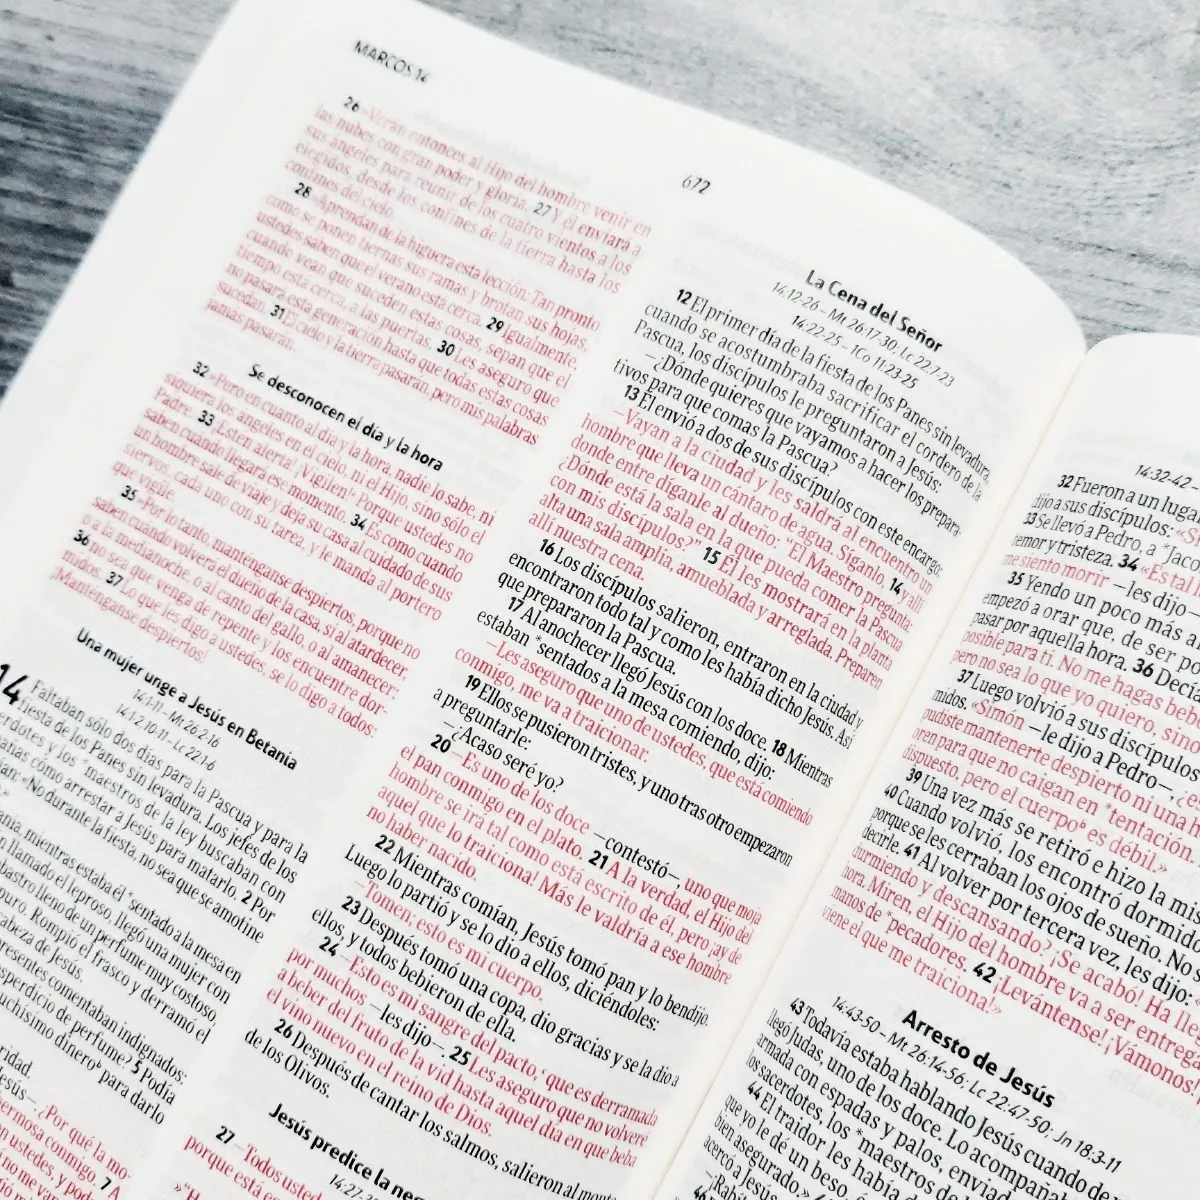 MARCOS 14
672
26 »Verán entonces al Hijo del hombre venir en
las nubes con gran poder y gloria. 27 Y él enviará a
sus ángeles para reunir de los cuatro vientos a los
elegidos, desde los confines de la tierra hasta los
confines del cielo.
28 »Aprendan de la higuera esta lección: Tan pronto
como se ponen tiernas sus ramas y brotan sus hojas,
ustedes saben que el verano está cerca. 29 Igualmente
cuando vean que suceden estas cosas, sepan que el
tiempo está cerca, a las puertas. 30 Les aseguro que
no pasará esta generación hasta que todas estas cosas
sucedan. 31 El cielo y la tierra pasarán, pero mis palabras
jamás pasarán.
Se desconocen el día y la hora
32 »Pero en cuanto al día y la hora, nadie lo sabe, ni
siquiera los ángeles en el cielo, ni el Hijo, sino sólo el
Padre. 33 ¡Estén alerta! ¡Vigilen! Porque ustedes no
saben cuándo llegará ese momento. 34 Es como cuando
un hombre sale de viaje y deja su casa al cuidado de sus
siervos, cada uno con su tarea, y le manda al portero
que vigile.
35 »Por lo tanto, manténganse despiertos, porque no
saben cuándo volverá el dueño de la casa, si al atardecer,
o a la medianoche, o al canto del gallo, o al amanecer;
36 no sea que venga de repente y los encuentre dor-
midos. 37 Lo que les digo a ustedes, se lo digo a todos:
¡Manténganse despiertos!
Una mujer unge a Jesús en Betania
14:1-11 – Mt 26:2-16
14:1,2,10,11 – Lc 22:1-6
14 Faltaban sólo dos días para la Pascua y para la
fiesta de los Panes sin levadura. Los jefes de los
erdotes y los *maestros de la ley buscaban con
añas cómo arrestar a Jesús para matarlo. 2 Por
ían: «No durante la fiesta, no sea que se amotine
ania, mientras estaba él *sentado a la mesa en
n llamado el leproso, llegó una mujer con
bastro lleno de un perfume muy costoso,
puro. Rompió el frasco y derramó el
abeza de Jesús.
resentes comentaban indignados:
sperdicio de perfume? 5 Podía
uchísimo dinero para darlo
ridad.
esús—. ¿Por qué la mo-
ermosa conmigo. 7 A
n ustedes, y pod
o no me va
La Cena del Señor
14:12-26 – Mt 26:17-30; Lc 22:7-23
14:22-25 – 1Co 11:23-25
12 El primer día de la fiesta de los Panes sin levadura,
cuando se acostumbraba sacrificar el cordero de la
Pascua, los discípulos le preguntaron a Jesús:
—¿Dónde quieres que vayamos a hacer los prepara-
tivos para que comas la Pascua?
13 Él envió a dos de sus discípulos con este encargo:
—Vayan a la ciudad y les saldrá al encuentro un
hombre que lleva un cántaro de agua. Síganlo, 14 y allí
donde entre díganle al dueño: "El Maestro pregunta:
¿Dónde está la sala en la que pueda comer la Pascua
con mis discípulos?" 15 Él les mostrará en la planta
alta una sala amplia, amueblada y arreglada. Preparen
allí nuestra cena.
16 Los discípulos salieron, entraron en la ciudad y
encontraron todo tal y como les había dicho Jesús. Así
que prepararon la Pascua.
17 Al anochecer llegó Jesús con los doce. 18 Mientras
estaban *sentados a la mesa comiendo, dijo:
—Les aseguro que uno de ustedes, que está comiendo
conmigo, me va a traicionar.
19 Ellos se pusieron tristes, y uno tras otro empezaron
a preguntarle:
—¿Acaso seré yo?
20 —Es uno de los doce —contestó—, uno que moja
el pan conmigo en el plato. 21 A la verdad, el Hijo del
hombre se irá tal como está escrito de él, pero ¡ay de
aquel que lo traiciona! Más le valdría a ese hombre
no haber nacido.
22 Mientras comían, Jesús tomó pan y lo bendijo.
Luego lo partió y se lo dio a ellos, diciéndoles:
—Tomen; esto es mi cuerpo.
23 Después tomó una copa, dio gracias y se la dio a
ellos, y todos bebieron de ella.
24 —Esto es mi sangre del pacto, que es derramada
por muchos —les dijo—. 25 Les aseguro que no volveré
a beber del fruto de la vid hasta aquel día en que beba
el vino nuevo en el reino de Dios.
26 Después de cantar los salmos, salieron al monte
de los Olivos.
Jesús predice la neg
14:27-
27 —Todos usted
porque está e
14:32-42 –
32 Fueron a un luga
dijo a sus discípulos: «Si
33 Se llevó a Pedro, a *Jaco
temor y tristeza. 34 «Es tal
me siento morir —les dijo—
35 Yendo un poco más a
empezó a orar que, de ser po
pasar por aquella hora. 36 Decí
posible para ti. No me hagas beb
pero no sea lo que yo quiero, sino
37 Luego volvió a sus discípulos
midos. «Simón —le dijo a Pedro—, ¿es
pudiste mantenerte despierto ni una h
oren para que no caigan en *tentación.
dispuesto, pero el cuerpo es débil.»
39 Una vez más se retiró e hizo la mi
40 Cuando volvió, los encontró dormid
porque se les cerraban los ojos de sueño. No s
decirle. 41 Al volver por tercera vez, les dijo:
durmiendo y descansando? ¡Se acabó! Ha lle
hora. Miren, el Hijo del hombre va a ser entreg
manos de *pecadores. 42 ¡Levántense! ¡Vámonos!
viene el que me traiciona!»
Arresto de Jesús
14:43-50 – Mt 26:14-56; Lc 22:47-50; Jn 18:3-11
43 Todavía estaba hablando Jesús cuando de
llegó Judas, uno de los doce. Lo acompaña
armada con espadas y palos, enviad
los sacerdotes, los *maestros d
44 El traidor les había d
que yo le dé un beso, é
bien asegurado.»
acercó a Jesús
—¡Rabí
46